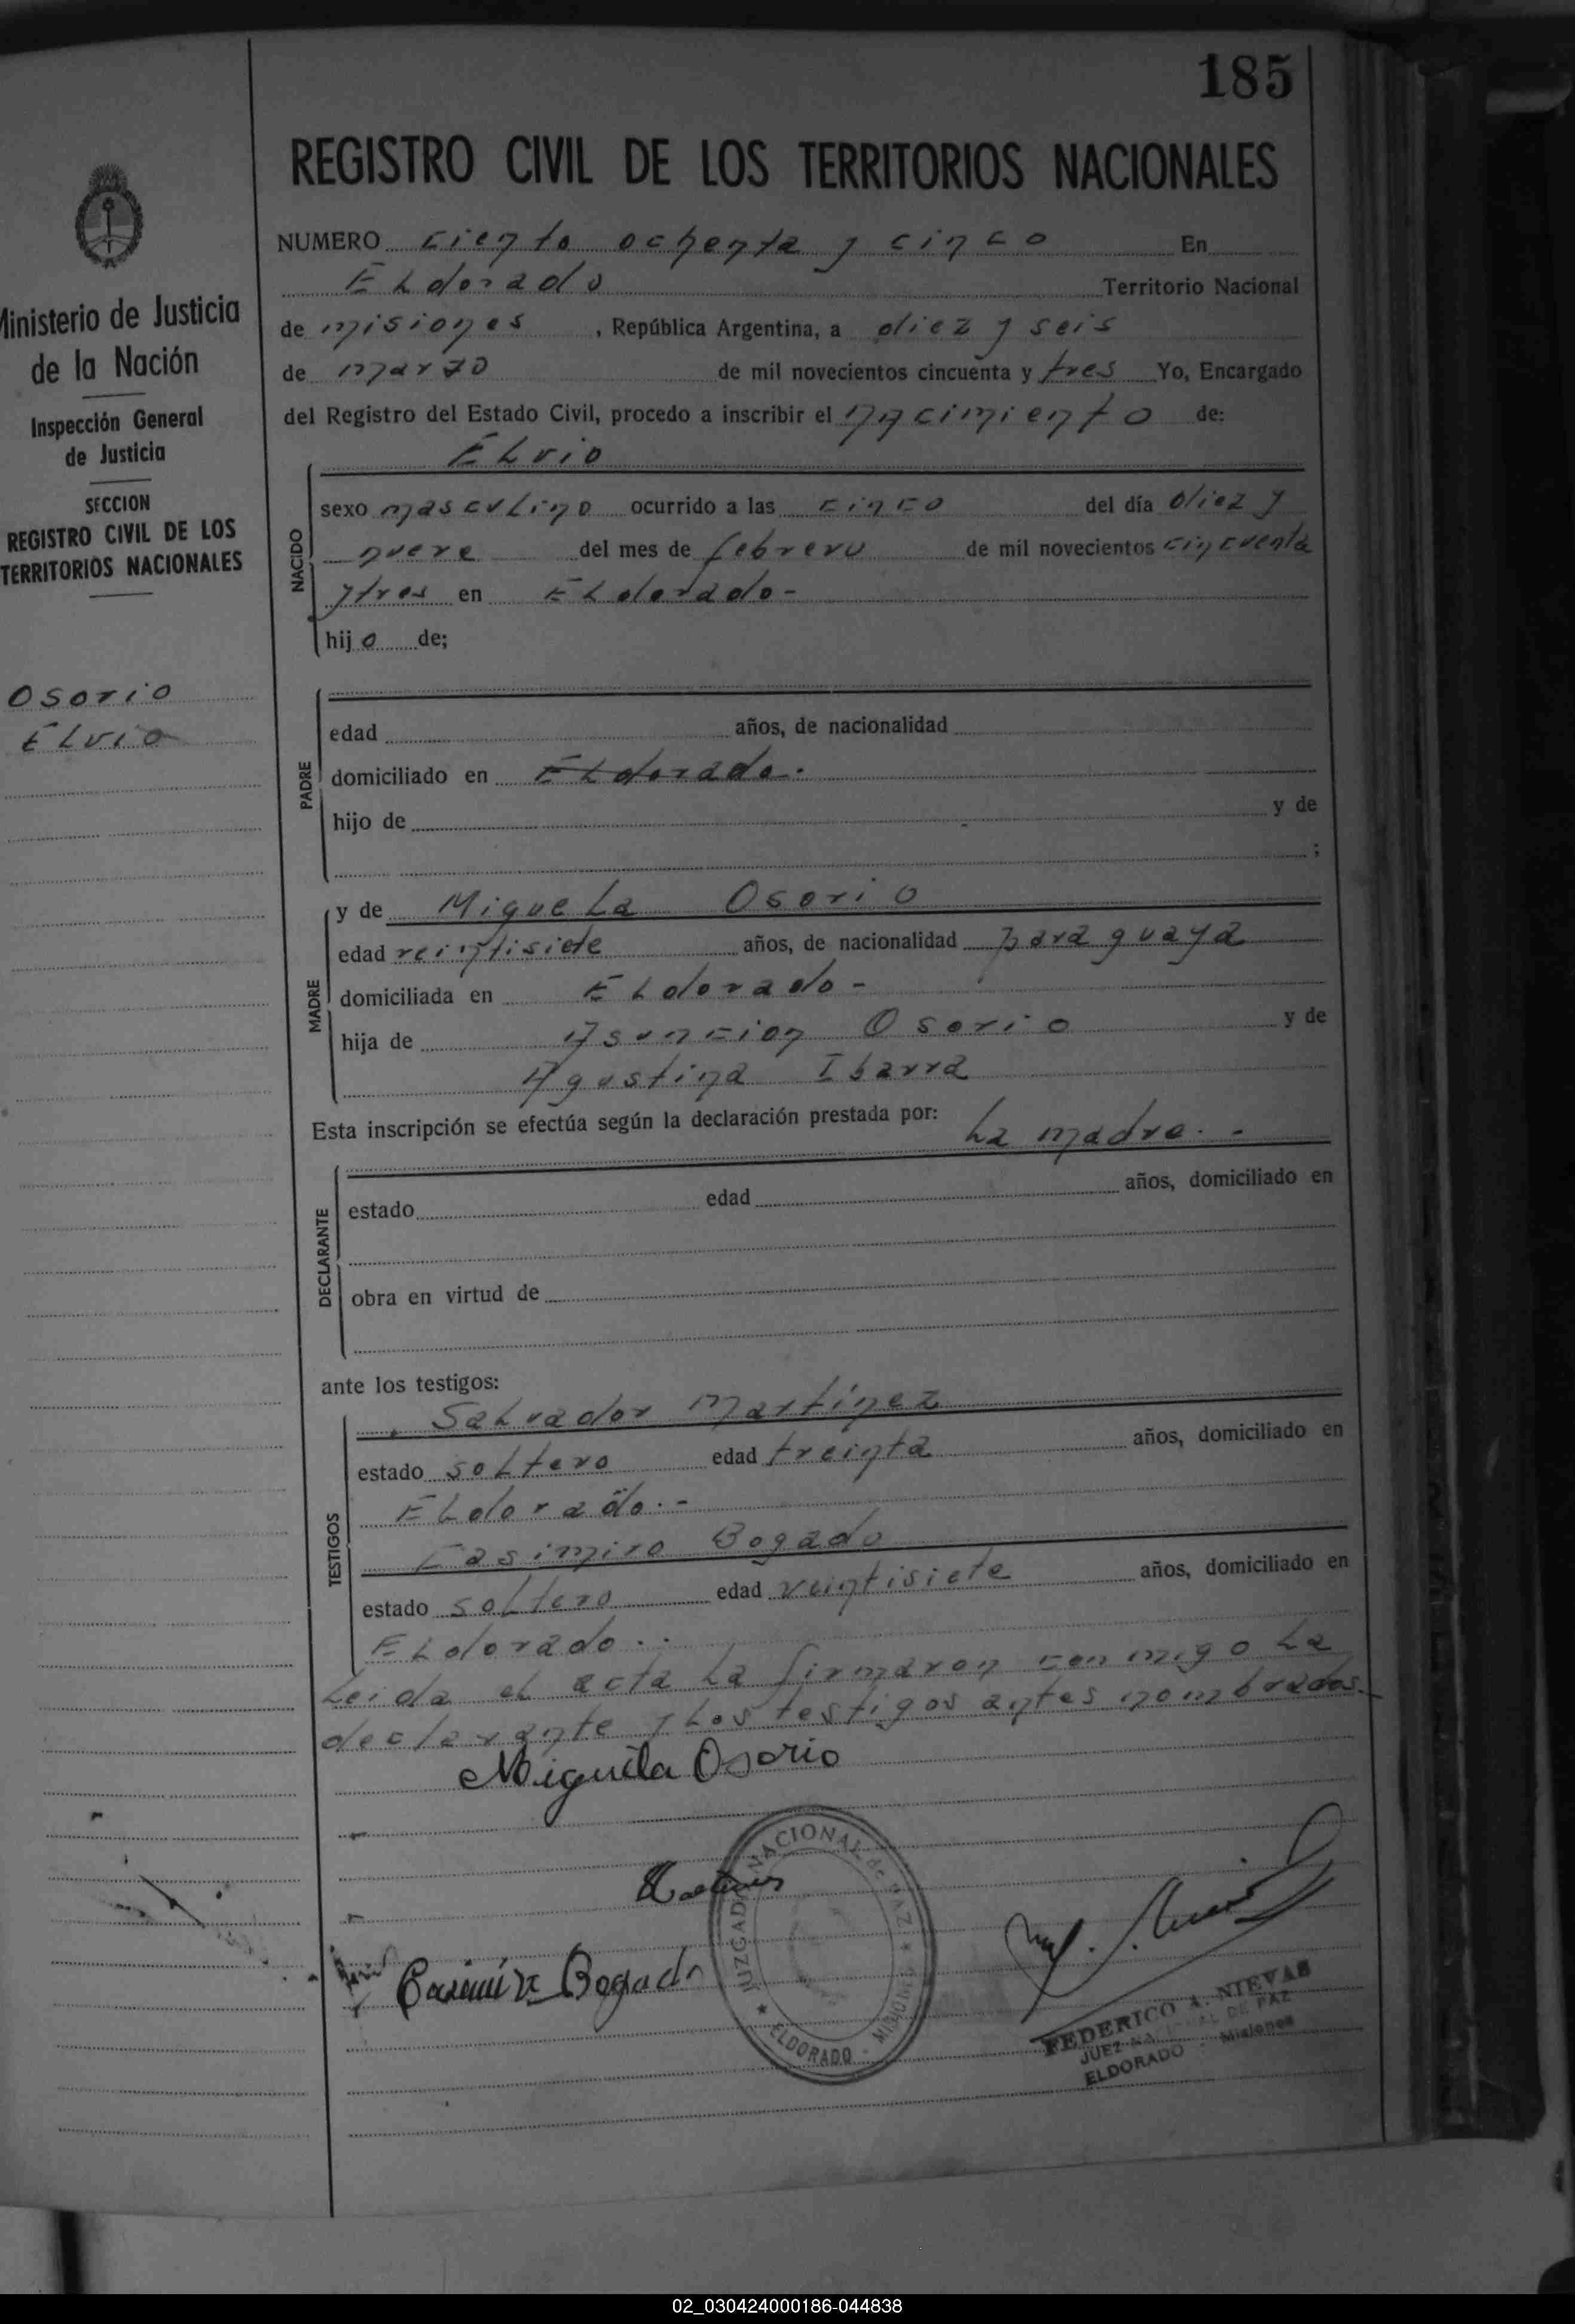 185
REGISTRO CIVIL DE LOS TERRITORIOS NACIONALES
Ministerio de Justicia
de la Nación
Inspección General
de Justicia
SECCION
REGISTRO CIVIL DE LOS
TERRITORIOS NACIONALES
Osorio
Elvio
NUMERO ciento ochenta y cinco En
Eldorado Territorio Nacional
de misiones , República Argentina, a diez y seis
de marzo de mil novecientos cincuenta y tres Yo, Encargado
del Registro del Estado Civil, procedo a inscribir el nacimiento de:
Elvio
NACIDO
sexo masculino ocurrido a las cinco del día diez y
nueve del mes de febrero de mil novecientos cincuenta
y tres en Eldorado-
hijo de;
PADRE
edad años, de nacionalidad
domiciliado en Eldorado.
hijo de y de
;
MADRE
y de Miguela Osorio
edad veintisiete años, de nacionalidad paraguaya
domiciliada en Eldorado-
hija de Asuncion Osorio y de
Agustina Ibarra
Esta inscripción se efectúa según la declaración prestada por: La madre.-
DECLARANTE
estado edad años, domiciliado en
obra en virtud de
ante los testigos:
TESTIGOS
Salvador Martinez
estado soltero edad treinta años, domiciliado en
Eldorado.-
Casimiro Bogado
estado soltero edad veintisiete años, domiciliado en
Eldorado..
Leida el acta la firmaron conmigo la
declarante y los testigos antes nombrados.-
Miguela Osorio
JUZGADO NACIONAL de PAZ
★ ELDORADO - MISIONES ★
Bogado
FEDERICO A. NIEVAS
JUEZ NACIONAL DE PAZ
ELDORADO - Misiones
02_030424000186-044838